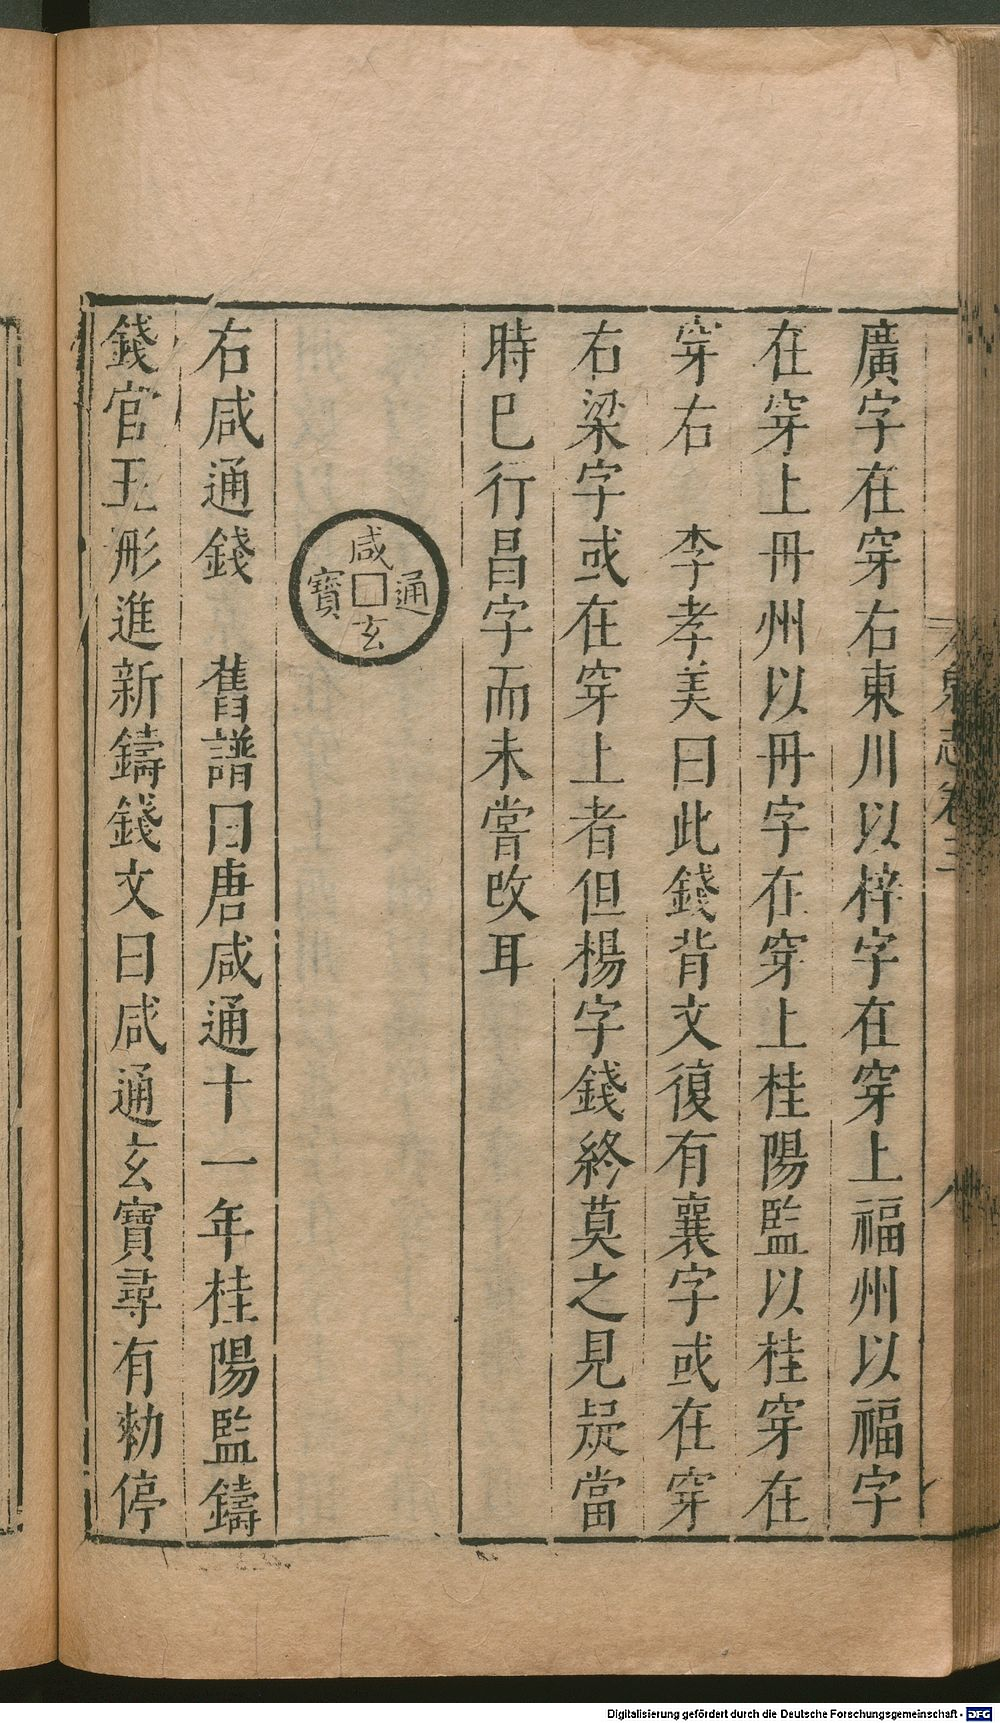 廣字在穿右東川以梓字在穿上福州以福字
在穿上冊州以冊字在穿上桂陽監以桂穿在
穿右　李孝美曰此錢背文復有襄字或在穿
右梁字或在穿上者但楊字錢終莫之見疑當
時巳行昌字而未嘗改耳
咸通玄寶
右咸通錢　舊譜曰唐咸通十一年桂陽監鑄
錢官王彤進新鑄錢文曰咸通玄寶尋有勑停
泉志卷三
八
Digitalisierung gefördert durch die Deutsche Forschungsgemeinschaft - DFG